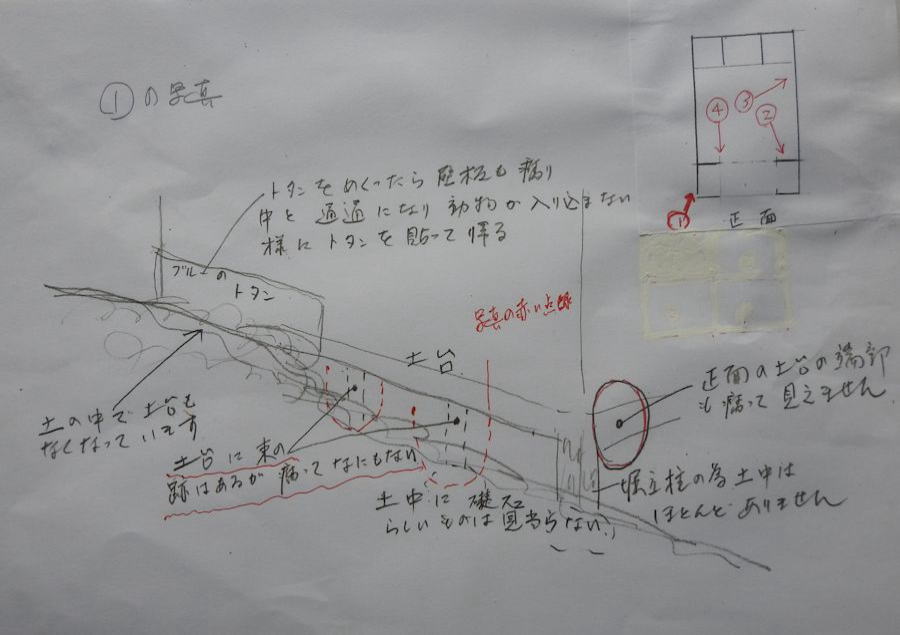 ①の写真
④
③
②
①
正面
トタンをめくったら壁板も腐り
中と通通になり動物が入り込まない
様にトタンを貼って居る
ブルーの
トタン
写真の赤い点線
土台
正面の土台の端部
も腐って見えません
土の中で土台も
なくなっています
土台に束の
跡はあるが腐ってなにもない
土中に礎石
らしいものは見当らない
堀立柱の為土中は
ほとんどありません